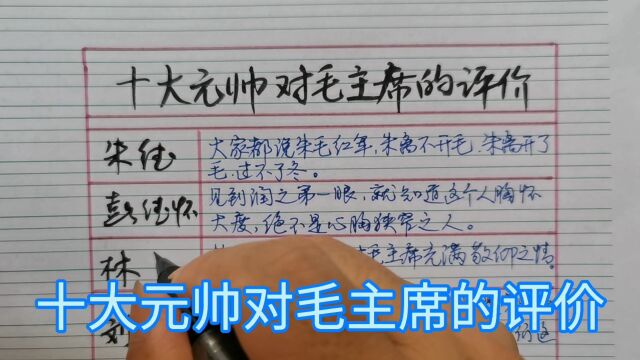 十大元帅对毛主席的评价
朱德
大家都说朱毛红军,朱离不开毛,朱离开了
毛,过不了冬。
彭德怀
见到润之第一眼,就知道这个人胸怀
大度,绝不是心胸狭窄之人。
林
毛主席充满敬仰之情。
刘
十大元帅对毛主席的评价